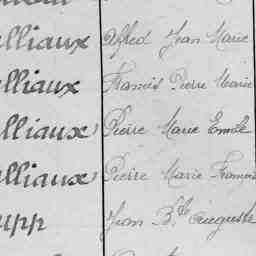 lliaux Alfred Jean Marie
lliaux Francis Pierre Marie
lliaux Pierre Marie Emile
lliaux Pierre Marie Francois
upp Jean Bte Auguste